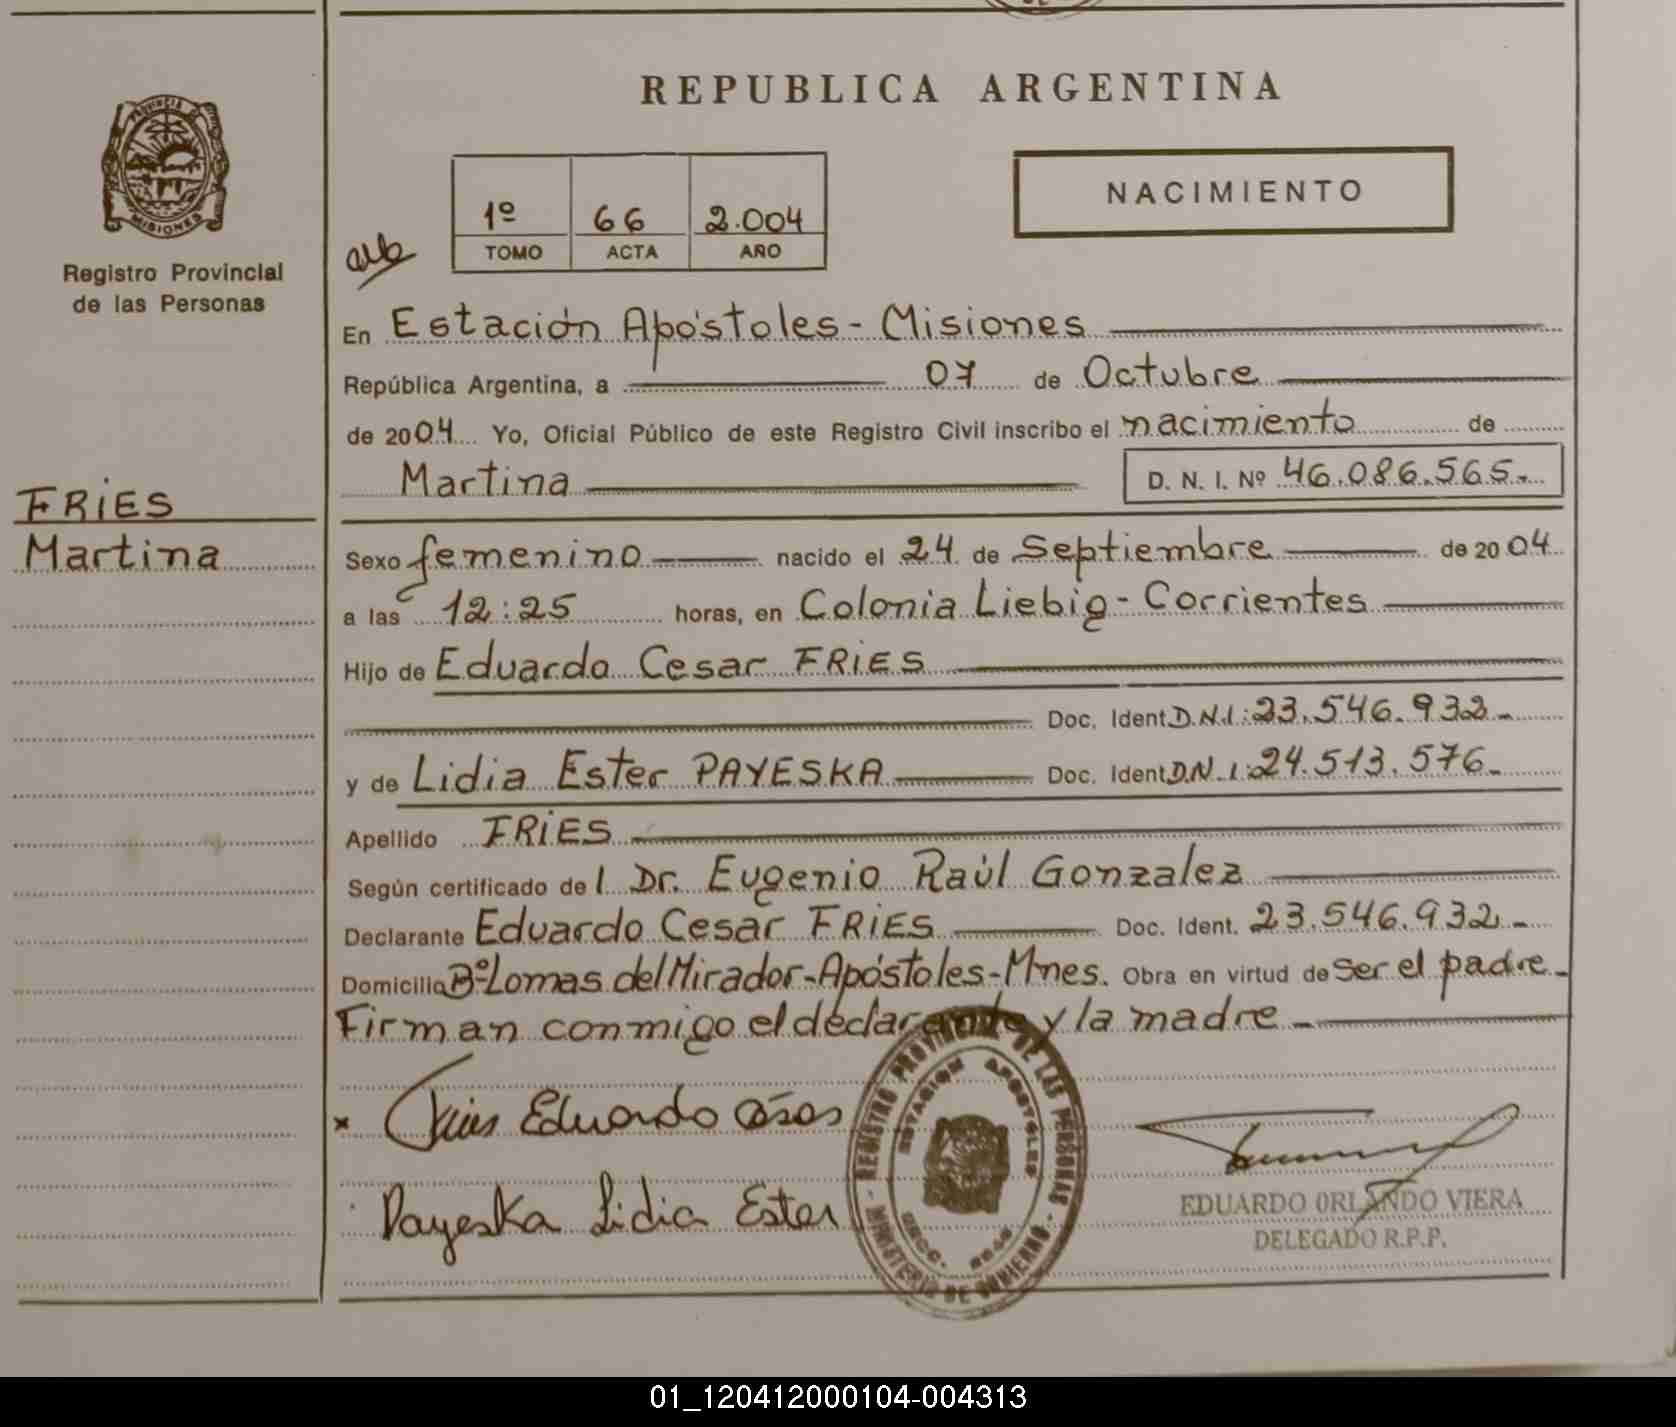 REPUBLICA ARGENTINA
PROVINCIA
MISIONES
Registro Provincial
de las Personas
1º 66 2.004
TOMO ACTA AÑO
NACIMIENTO
En Estación Apóstoles - Misiones
República Argentina, a 07 de Octubre
de 2004 Yo, Oficial Público de este Registro Civil inscribo el nacimiento de
Martina D. N. I. Nº 46.086.565.-
FRIES
Martina
Sexo femenino nacido el 24 de Septiembre de 2004
a las 12:25 horas, en Colonia Liebig - Corrientes
Hijo de Eduardo Cesar FRIES
Doc. Ident D.N.I: 23.546.932-
y de Lidia Ester PAYESKA Doc. Ident D.N.I: 24.513.576-
Apellido FRIES
Según certificado de l Dr. Eugenio Raúl Gonzalez
Declarante Eduardo Cesar FRIES Doc. Ident. 23.546.932-
Domicilio Bº Lomas del Mirador - Apóstoles - Mnes. Obra en virtud de ser el padre-
Firman conmigo el declarante y la madre -
x Fries Eduardo Césas
Payeska Lidia Ester
REGISTRO PROVINCIAL DE LAS PERSONAS
ESTACION APOSTOLES
MINISTERIO DE GOBIERNO
EDUARDO ORLANDO VIERA
DELEGADO R.P.P.
01_120412000104-004313